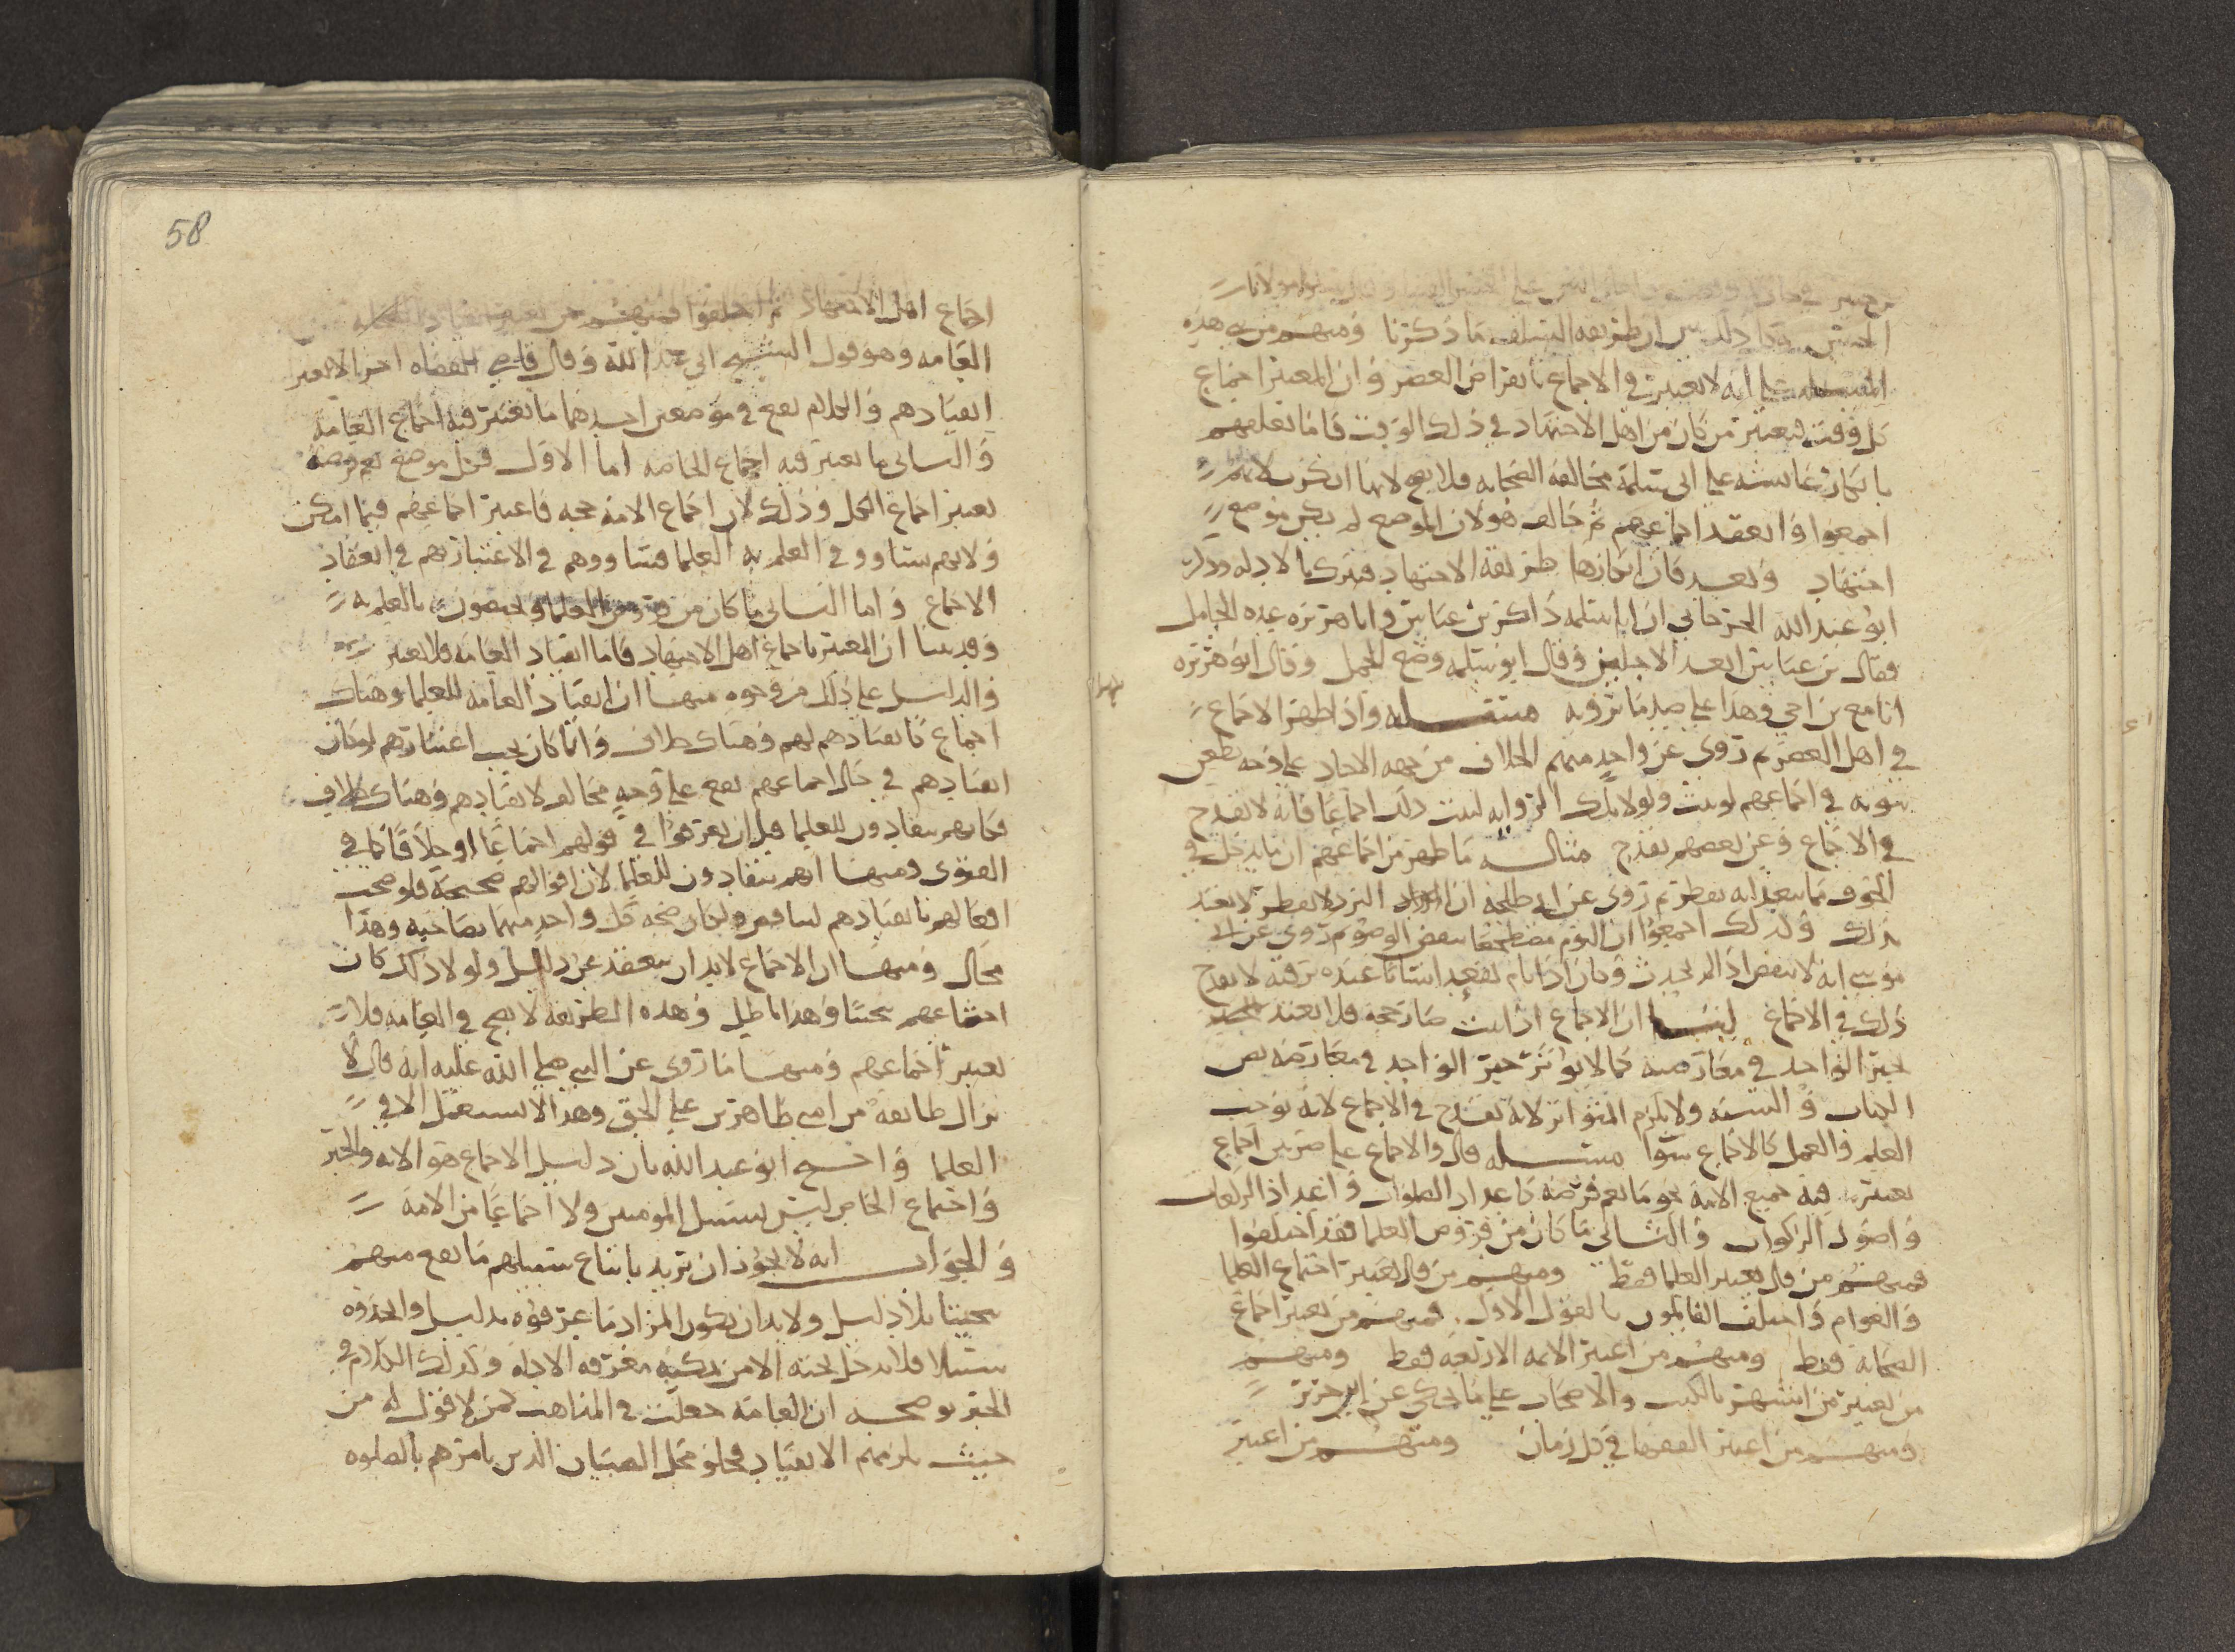 الحسن ان طريقه السلف ما ذكرنا ومنهم من بنى هذه
المسله على انه لا يعتبر في الاجماع بانقراض العصر وان المعتبر اجماع
كل وقت فيعتبر من كان من اهل الاجتهاد في ذلك الوقت فاما تعلقهم
بانكار عائشه على ابي سلمة مخالفه الصحابه فلا يصح لانها انكرت لانهم
اجمعوا وانعقد اجماعهم ثم خالف هو لان الموضع لم يكن موضع
اجتهاد وبعد فان انكارها طريقه الاجتهاد فترك بالادله وذكر
ابو عبد الله الجرجاني ان ابا سلمه ذاكر بن عباس وابا هريره عده الحامل
فقال بن عباس ابعد الاجلين وقال ابو سلمه وضع الحمل وقال ابو هريره
انا مع بن اخي وهذا على ضد ما تروبه مسله واذا ظهر الاجماع
في اهل العصر ثم روى عن واحد منهم الخلاف من جهه الاحاد على وجه يطعن
ثبوته في اجماعهم لو ثبت ولولا تلك الروايه لثبت ذلك اجماعا فانه لا يقدح
في الاجماع وعن بعضهم يقدح مثاله ما ظهر من اجماعهم ان ما يدخل في
الجوف مما ينعقد انه يفطر ثم روى عن ابي طلحه ان البرد لا يفطر لا يعتد
بذلك وكذلك اجمعوا ان النوم مضطجعا ينقض الوضوء ثم روى عن ابي
موسى انه لا ينقض اذا لم يحدث وكان اذا نام يقعد انسانا عنده يرقبه لا يقدح
ذلك في الاجماع لنا ان الاجماع اذا ثبت صار حجه فلا يعتد
بخبر الواحد في معارضته كما لا يؤثر خبر الواحد في معارضه نص
الكتاب والسنه ولا يلزم المتواتر لانه يقدح في الاجماع لانه يوجب
العلم والعمل كالاجماع سوا مسله قال والاجماع على ضربين اجماع
يعتبر فيه جميع الامة نحو ما يعم فرضه كاعداد الصلوات واعداد الركعات
واصول الزكوات والثاني ما كان من فروض العلما فقد اختلفوا
فمنهم من قال يعتبر العلما فقط ومنهم من قال يعتبر اجماع العلما
والعوام واختلف القائلون بالقول الاول فمنهم من يعتبر اجماع
الصحابه فقط ومنهم من اعتبر الائمه الاربعه فقط ومنهم
من يعتبر من اشتهر بالكتب والاصحاب على ما يحكى عن ابن جرير
ومنهم من اعتبر الفقها في كل زمان ومنهم من اعتبر
58
اجماع اهل الاجتهاد ثم اختلفوا فمنهم من يعتبر انقياد
العامه وهو قول الشيخ ابي عبد الله وقال قاضي القضاه اخرا لا يعتبر
انقيادهم والكلام يقع في موضعين احدهما ما يعتبر فيه اجماع العامة
والثاني ما يعتبر فيه اجماع الخاصه اما الاول فكل موضع يعم فرضه
يعتبر اجماع الكل وذلك لان اجماع الامة حجه فاعتبر اجماعهم فيما امكن
ولانهم ساووا في العلم به العلما فساووهم في الاعتبار بهم في انعقاد
الاجماع واما الثاني ما كان من فروض العلما ويختصون بالعلم به
وقد بينا ان المعتبر باجماع اهل الاجتهاد فاما انقياد العامة فلا يعتبر
والدليل على ذلك من وجوه منها ان انقياد العامه للعلما وهناك
اجماع كانقيادهم لهم وهناك خلاف وانما كان يجب اعتبارهم لو كان
انقيادهم في حال اجماعهم يقع على وجه مخالف لانقيادهم وهناك خلاف
فكانهم ينقادون للعلما قبل ان يعرفوا في قولهم اجماعا او خلافا كما في
الفتوى ومنها انهم ينقادون للعلما لان اقوالهم صحيحة فلو صحت
اقوالهم بانقيادهم لتناقض ولكان صحه كل واحد منهما بصاحبه وهذا
محال ومنها ان الاجماع لابد ان ينعقد عن دليل ولولا ذلك كان
اجماعهم تبخيتا وهذا باطل وهذه الطريقه لا تصح في العامه فلا
يعتبر اجماعهم ومنها ما روى عن النبي صلى الله عليه انه قال لا
تزال طائفه من امتي ظاهرين على الحق وهذا لا يستعمل الا في
العلما واحتج ابو عبد الله بان دليل الاجماع هو الايه والخبر
واجتماع الخاص ليس بسبيل المومنين ولا اجماعا من الامة
والجواب انه لا يجوز ان يريد باتباع سبيلهم ما يقع منهم
تبخيتا بلا دليل ولابد ان يكون المراد ما عرفوه بدليل واتخذوه
سبيلا فلا يدخل تحته الا من يمكنه معرفه الادلة وكذلك الكلام في
الخبر يوضحه ان العامه جعلت في المذاهب كمن لا قول له من
حيث يلزمهم الانقياد فحلو محل الصبيان الذين يامرهم بالصلوه